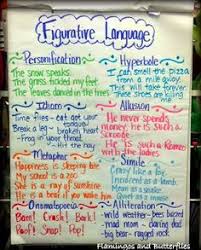 Figurative Language
Personification
The snow speaks.
The grass tickled my feet.
The leaves danced in the trees
Hyperbole
I can smell the pizza
from a mile away.
This will take forever
These shoes are killing
me
Idiom
Time flies - eat got your
tongue
Break a leg - broken heart
- Frog in your throat
Allusion
He never spends
money, he is such a
scrooge
He is such a Romeo
with the ladies
Metaphor
Happiness is
My school is a zoo
She is a ray of sunshine
Simile
Crazy like a fox
Innocent as a lamb
Quiet as a
Onomatopoeia
Bam! Crash! Bark!
Pop! Snap! Oink!
Alliteration
- wild weather - bees bazzed
- mad mom - daring dad
- big bear - ragged rock
Flamingos and Butterflies